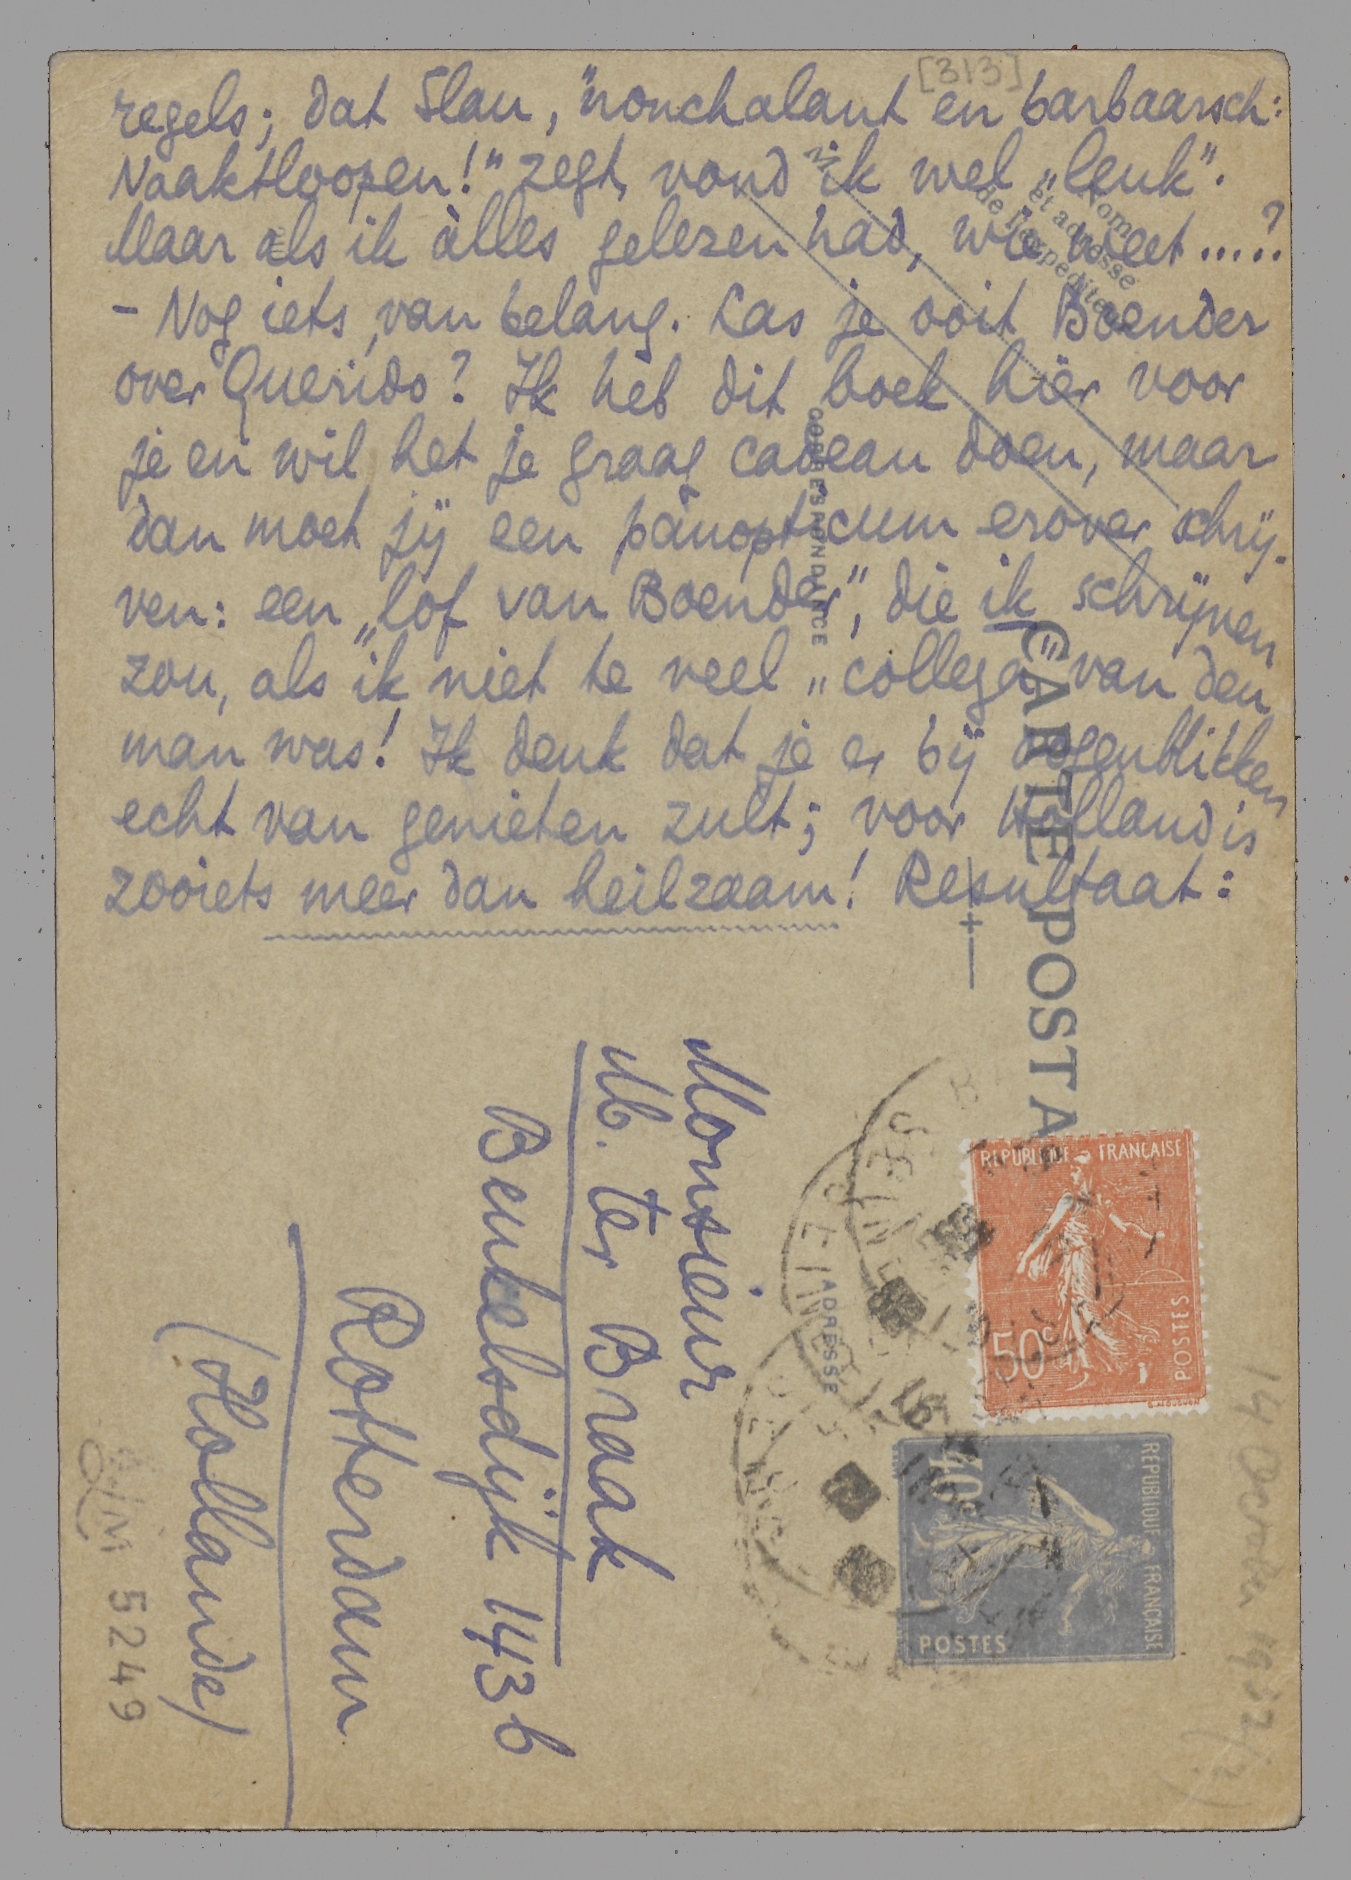 [313]
regels; dat Slau, "nonchalant en barbaarsch:
Naaktloopen!" zegt, vond ik wel „leuk".
Maar als ik àlles gelezen had, wie weet.....?
- Nog iets, van belang. Las je ooit Boender
over Querido? Ik heb dit boek hier voor
je en wil het je graag cadeau doen, maar
dan moet jij een panopticum erover schrij-
ven: een „lof van Boender", die ik schrijven
zou, als ik niet te veel „collega" van den
man was! Ik denk dat je er bij oogenblikken
echt van genieten zult; voor Holland is
zooiets meer dan heilzaam! Resultaat:
Nom
et adresse
de l'expéditeur
CORRESPONDANCE
CARTE POSTA
ADRESSE
Monsieur
M. ter Braak
Beukelsdijk 143 b
Rotterdam
(Hollande)
REPUBLIQUE FRANÇAISE
50c
POSTES
REPUBLIQUE FRANÇAISE
40c
POSTES
SEINE
SEINE
14 October 1932(?)
LM 5249